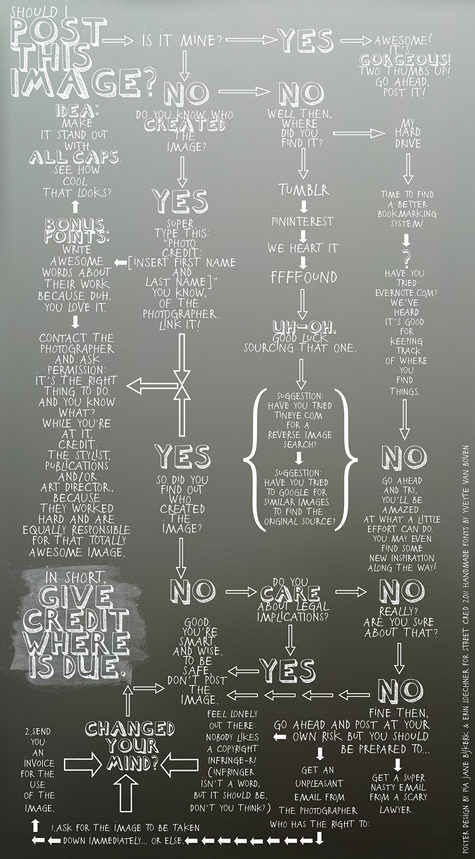 SHOULD I
POST
THIS
IMAGE?
IS IT MINE?
YES
AWESOME!
IT'S
GORGEOUS!
TWO THUMBS UP!
GO AHEAD,
POST IT!
NO
DO YOU KNOW WHO
CREATED
THE
IMAGE?
NO
WELL THEN,
WHERE
DID YOU
FIND IT?
MY
HARD
DRIVE
TIME TO FIND
A BETTER
BOOKMARKING
SYSTEM!
?
HAVE YOU
TRIED
EVERNOTE.COM?
WE'VE
HEARD
IT'S GOOD
FOR
KEEPING
TRACK
OF WHERE
YOU
FIND
THINGS.
TUMBLR
PININTEREST
WE HEART IT
FFFFOUND
UH-OH,
GOOD LUCK
SOURCING THAT ONE.
SUGGESTION:
HAVE YOU TRIED
TINEYE.COM
FOR A
REVERSE IMAGE
SEARCH?
SUGGESTION:
HAVE YOU TRIED
TO GOOGLE FOR
SIMILAR IMAGES
TO FIND THE
ORIGINAL SOURCE?
YES
SUPER.
TYPE THIS:
"PHOTO
CREDIT:
[INSERT FIRST NAME
AND
LAST NAME]"
YOU KNOW,
OF THE
PHOTOGRAPHER.
LINK IT!
IDEA:
MAKE
IT STAND OUT
WITH
ALL CAPS.
SEE HOW
COOL
THAT LOOKS?
BONUS
POINTS:
WRITE
AWESOME
WORDS ABOUT
THEIR WORK
BECAUSE DUH,
YOU LOVE IT.
CONTACT THE
PHOTOGRAPHER
AND ASK
PERMISSION:
IT'S THE RIGHT
THING TO DO.
AND YOU KNOW
WHAT?
WHILE YOU'RE
AT IT,
CREDIT
THE STYLIST,
PUBLICATIONS
AND/OR
ART DIRECTOR,
BECAUSE
THEY WORKED
HARD AND ARE
EQUALLY RESPONSIBLE
FOR THAT TOTALLY
AWESOME IMAGE.
YES
SO DID YOU
FIND OUT
WHO
CREATED
THE
IMAGE?
NO
GO AHEAD
AND TRY,
YOU'LL BE
AMAZED
AT WHAT A LITTLE
EFFORT CAN DO.
YOU MAY EVEN
FIND SOME
NEW INSPIRATION
ALONG THE WAY!
IN SHORT,
GIVE
CREDIT
WHERE
IS DUE.
NO
DO YOU
CARE
ABOUT LEGAL
IMPLICATIONS?
NO
REALLY?
ARE YOU SURE
ABOUT THAT?
YES
GOOD.
YOU'RE
SMART
AND WISE.
TO BE
SAFE,
DON'T POST
THE
IMAGE.
NO
FINE THEN,
GO AHEAD AND POST AT YOUR
OWN RISK BUT YOU SHOULD
BE PREPARED TO...
FEEL LONELY
OUT THERE:
NOBODY LIKES
A COPYRIGHT
INFRINGE-R/
(INFRINGER
ISN'T A WORD,
BUT IT SHOULD BE,
DON'T YOU THINK?)
GET AN
UNPLEASANT
EMAIL FROM
THE PHOTOGRAPHER
WHO HAS THE RIGHT TO:
GET A SUPER
NASTY EMAIL
FROM A SCARY
LAWYER.
CHANGED
YOUR
MIND?
2. SEND
YOU
AN
INVOICE
FOR THE
USE
OF THE
IMAGE.
1. ASK FOR THE IMAGE TO BE TAKEN
DOWN IMMEDIATELY... OR ELSE
POSTER DESIGN BY PIA JANE BIJKERK & ERIN LOECHNER FOR STREET CRED 2011 HANDMADE FONTS BY YVETTE VAN BOVEN